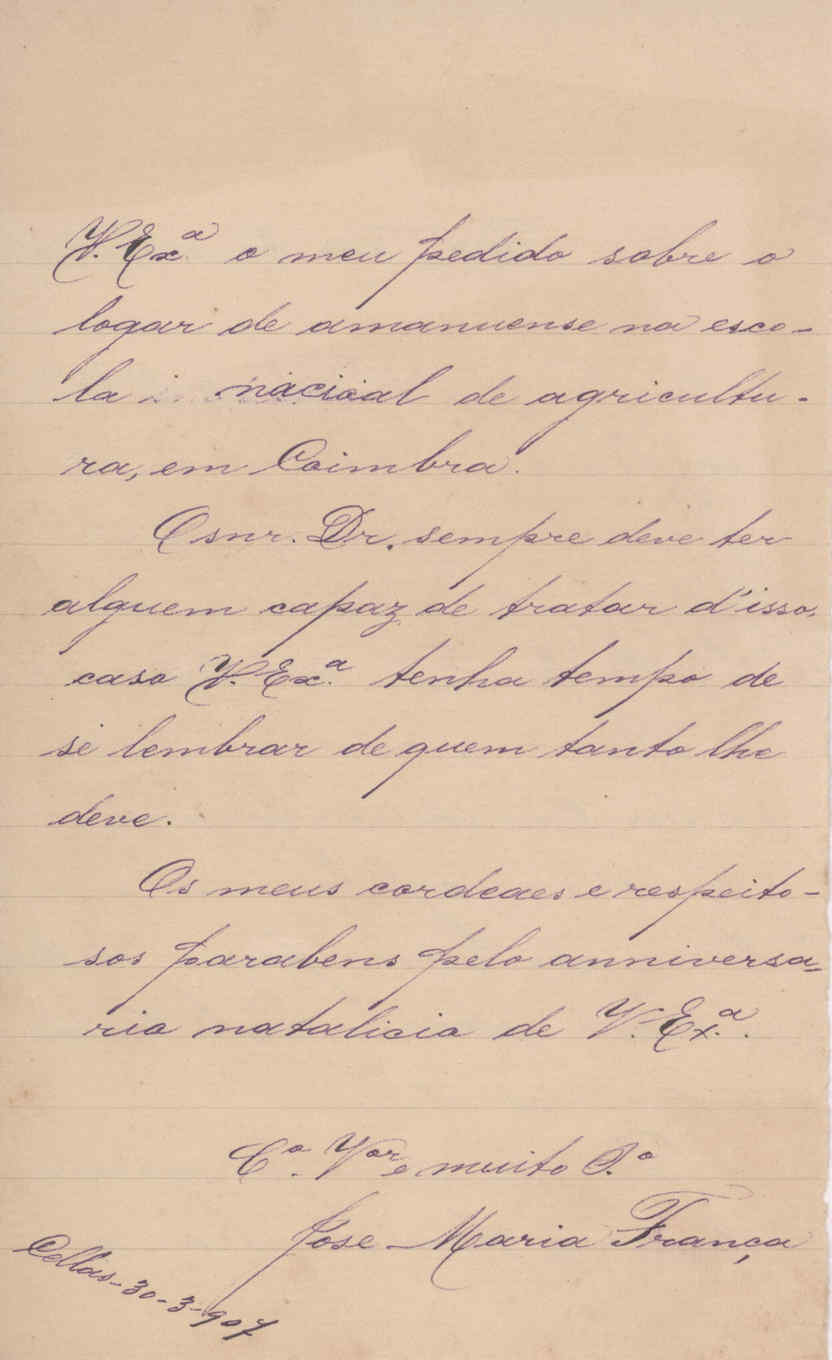 V. Exª. o meu pedido sobre o
logar de amanuense na esco-
la nacioal de agricultu-
ra, em Coimbra.
O snr. Dr. sempre deve ter
alguem capaz de tratar d'isso,
caso V. Exª. tenha tempo de
se lembrar de quem tanto lhe
deve.
Os meus cordeaes e respeito-
sos parabens pelo anniversa-
rio natalicio de V. Exª.
Cº. Vor e muito O.º
José Maria França
Cellas-30-3-907